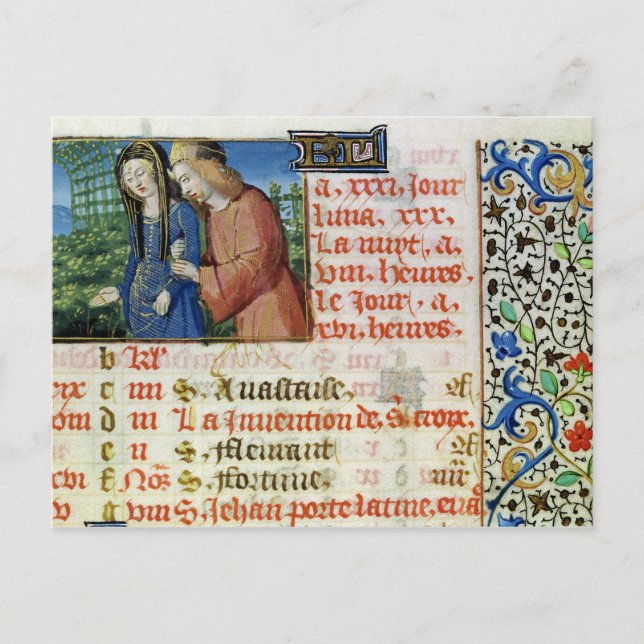 a, xxxi, Jour
luna, xxx,
La nuyt, a,
viii, heures,
le Jour, a,
xvi, heures,
b kl'
xix c iiii S, Anastaise,
d iii La Invention de, S, croix,
e ii S, flemant
xvi f No&#x27;s S, fortune, iiii
v g viii S, Jehan porte latine, eva